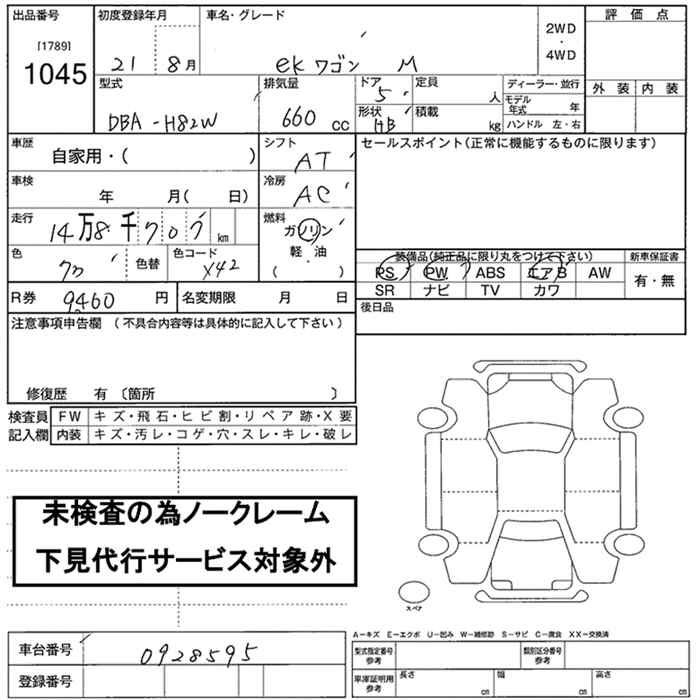 出品番号 初度登録年月 車名・グレード 評価点
[1789] 2WD
1045 21 8月 ekワゴン M ・ 4WD
型式 排気量 ドア 定員 ディーラー・並行 外装 内装
5 人 モデル年式 年
DBA-H82W 660 cc 形状 HB 積載 kg ハンドル 左・右
車歴 シフト セールスポイント(正常に機能するものに限ります)
自家用・( ) AT
車検 冷房
年 月( 日) AC
走行 燃料
14万8千707 km ガソリン
色 色替 色コード 軽・油
X42 ( )
装備品(純正品に限り丸をつけて下さい) 新車保証書
PS PW ABS エアB AW 有・無
SR ナビ TV カワ
R券 9460 円 名変期限 月 日 後日品
注意事項申告欄 (不具合内容等は具体的に記入して下さい)
修復歴 有 〔箇所 〕
検査員 FW キズ・飛石・ヒビ割・リペア跡・X要
記入欄 内装 キズ・汚レ・コゲ・穴・スレ・キレ・破レ
未検査の為ノークレーム
下見代行サービス対象外
スペア
A−キズ E−エクボ U−凹み W−補修跡 S−サビ C−腐食 XX−交換済
車台番号 0928595 型式指定番号 参考 類別区分番号 参考
登録番号 車庫証明用 参考 長さ cm 幅 cm 高さ cm